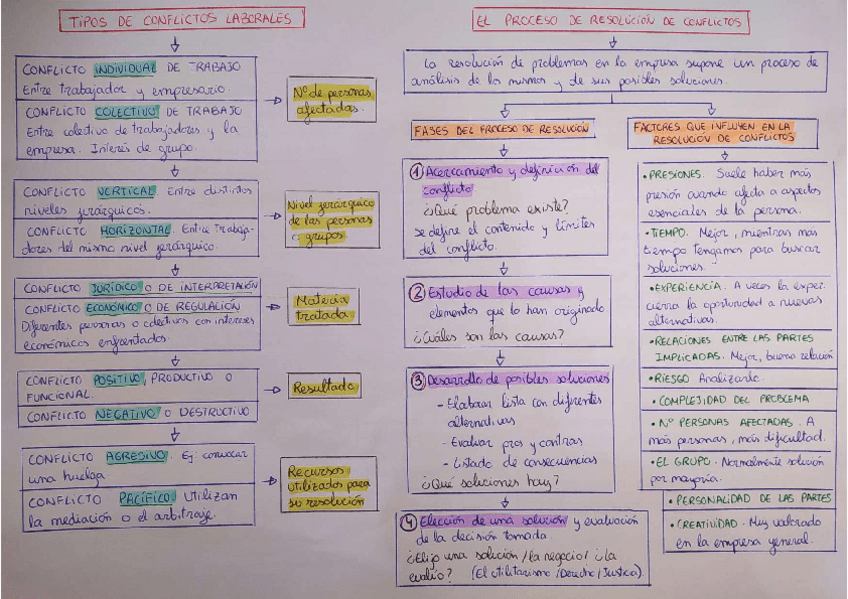 TIPOS DE CONFLICTOS LABORALES
CONFLICTO INDIVIDUAL DE TRABAJO
Entre trabajador y empresario.
CONFLICTO COLECTIVO DE TRABAJO
Entre colectivo de trabajadores y la
empresa. Interés de grupo.
Nº de personas
afectadas.
CONFLICTO VERTICAL. Entre distintos
niveles jerárquicos.
CONFLICTO HORIZONTAL. Entre trabaja-
dores del mismo nivel jerárquico.
Nivel jerárquico
de las personas
o grupos
CONFLICTO JURÍDICO O DE INTERPRETACIÓN
CONFLICTO ECONÓMICO O DE REGULACIÓN
Diferentes personas o colectivos con intereses
económicos enfrentados.
Materia
tratada
CONFLICTO POSITIVO, PRODUCTIVO O
FUNCIONAL.
CONFLICTO NEGATIVO O DESTRUCTIVO
Resultado
CONFLICTO AGRESIVO. Ej: convocar
una huelga
CONFLICTO PACÍFICO. Utilizan
la mediación o el arbitraje.
Recursos
utilizados para
su resolución
EL PROCESO DE RESOLUCIÓN DE CONFLICTOS
La resolución de problemas en la empresa supone un proceso de
análisis de los mismos y de sus posibles soluciones.
FASES DEL PROCESO DE RESOLUCIÓN
1 Acercamiento y definición del
conflicto
¿Qué problema existe?
Se define el contenido y límites
del conflicto.
2 Estudio de las causas y
elementos que lo han originado
¿Cuáles son las causas?
3 Desarrollo de posibles soluciones
- Elaborar lista con diferentes
alternativas
- Evaluar pros y contras
- Listado de consecuencias
¿Qué soluciones hay?
4 Elección de una solución y evaluación
de la decisión tomada.
¿Elijo una solución / la negocio / ¿la
evalúo? (El utilitarismo / Derecho / Justicia).
FACTORES QUE INFLUYEN EN LA
RESOLUCIÓN DE CONFLICTOS
• PRESIONES. Suele haber más
presión cuando afecta a aspectos
esenciales de la persona.
• TIEMPO. Mejor, mientras más
tiempo tengamos para buscar
soluciones.
• EXPERIENCIA. A veces la exper.
cierra la oportunidad a nuevas
alternativas.
• RELACIONES ENTRE LAS PARTES
IMPLICADAS. Mejor, buena relación
• RIESGO Analizarlo.
• COMPLEJIDAD DEL PROBLEMA
• Nº PERSONAS AFECTADAS. A
más personas, más dificultad.
• EL GRUPO. Normalmente solución
por mayoría.
• PERSONALIDAD DE LAS PARTES
• CREATIVIDAD. Muy valorado
en la empresa general.